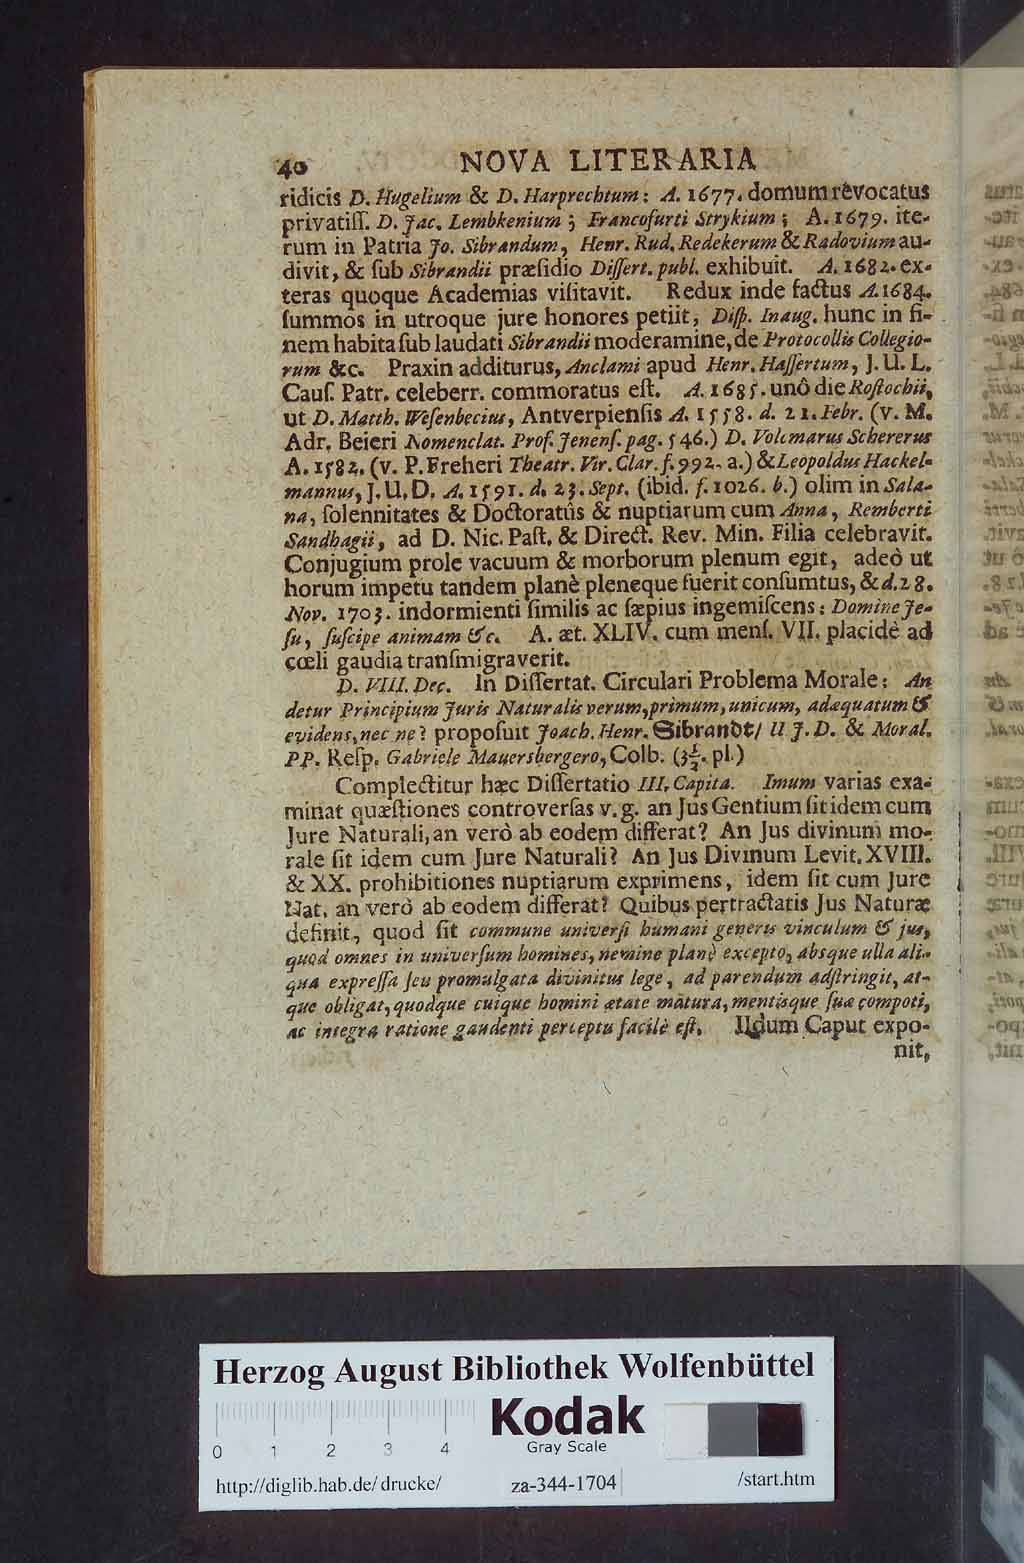 40 NOVA LITERARIA
ridicis D. Hugelium & D. Harprechtum: A. 1677. domum rêvocatus
privatiſſ. D. Jac. Lembkenium; Francofurti Strykium; A. 1679. ite-
rum in Patria Jo. Sibrandum, Henr. Rud. Redekerum & Radovium au-
divit, & ſub Sibrandii præſidio Diſſert. publ. exhibuit. A. 1682. ex-
teras quoque Academias viſitavit. Redux inde factus A. 1684.
ſummos in utroque jure honores petiit, Diſp. Inaug. hunc in fi-
nem habita ſub laudati Sibrandii moderamine, de Protocollis Collegio-
rum &c. Praxin additurus, Anclami apud Henr. Haſſertum, J. U. L.
Cauſ. Patr. celeberr. commoratus eſt. A. 1685. unô die Roſtochii,
ut D. Matth. Weſenbecius, Antverpienſis A. 1558. d. 21. Febr. (v. M.
Adr. Beieri Nomenclat. Prof. Jenenſ. pag. 546.) D. Volcmarus Schererus
A. 1582. (v. P. Freheri Theatr. Vir. Clar. f. 992. a.) & Leopoldus Hackel-
mannus, J. U. D. A. 1591. d. 23. Sept. (ibid. f. 1026. b.) olim in Sala-
na, ſolennitates & Doctoratûs & nuptiarum cum Anna, Remberti
Sandhagii, ad D. Nic. Paſt. & Direct. Rev. Min. Filia celebravit.
Conjugium prole vacuum & morborum plenum egit, adeò ut
horum impetu tandem planè pleneque fuerit conſumtus, & d. 28.
Nov. 1703. indormienti ſimilis ac ſæpius ingemiſcens: Domine Je-
ſu, ſuſcipe animam &c. A. æt. XLIV. cum menſ. VII. placidè ad
cœli gaudia tranſmigraverit.
D. VIII. Dec. In Diſſertat. Circulari Problema Morale: An
detur Principium Juris Naturalis verum, primum, unicum, adæquatum &
evidens, nec ne? propoſuit Joach. Henr. Sibrandt/ U J. D. & Moral.
PP. Reſp. Gabriele Mauersbergero, Colb. (3½. pl.)
Complectitur hæc Diſſertatio III. Capita. Imum varias exa-
minat quæſtiones controverſas v. g. an Jus Gentium ſit idem cum
Jure Naturali, an verò ab eodem differat? An Jus divinum mo-
rale ſit idem cum Jure Naturali? An Jus Divinum Levit. XVIII.
& XX. prohibitiones nuptiarum exprimens, idem ſit cum Jure
Nat. an verò ab eodem differat? Quibus pertractatis Jus Naturæ
definit, quod ſit commune univerſi humani generis vinculum & jus,
quod omnes in univerſum homines, nemine planè excepto, absque ulla ali-
qua expreſſa ſeu promulgata divinitus lege, ad parendum adſtringit, at-
que obligat, quodque cuique homini ætate matura, mentisque ſuæ compoti,
ac integra ratione gaudenti perceptu facilè eſt. IIdum Caput expo-
nit,
Herzog August Bibliothek Wolfenbüttel
Kodak
Gray Scale
0 1 2 3 4
http://diglib.hab.de/drucke/ za-344-1704 /start.htm